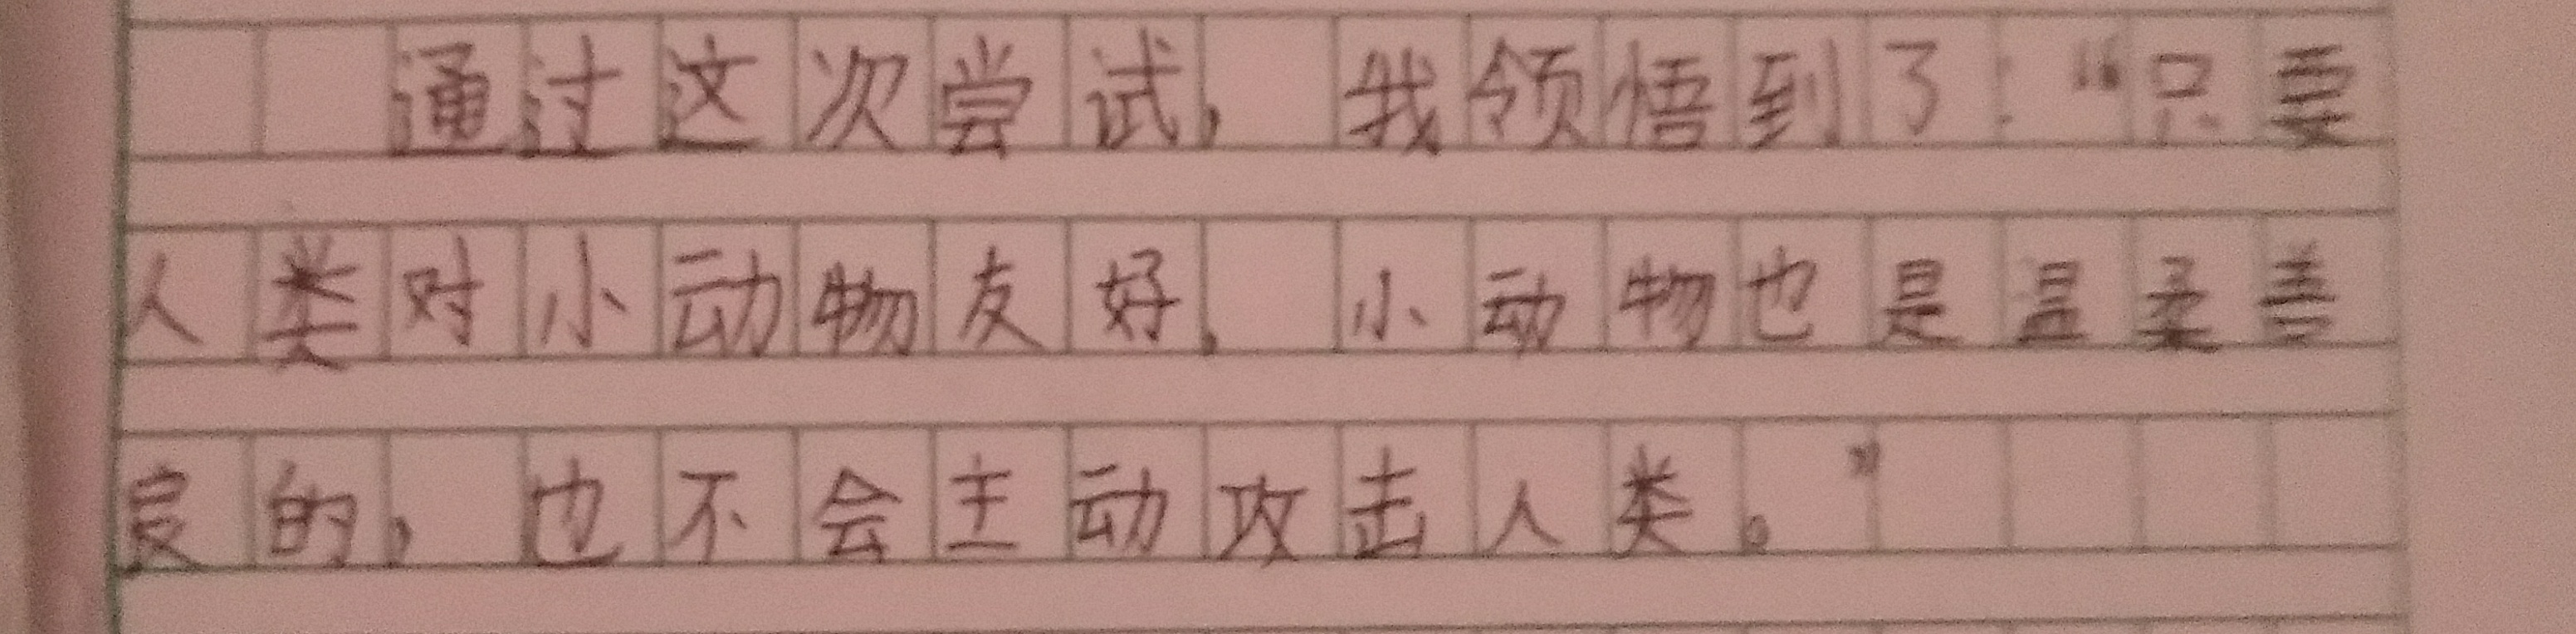 通过这次尝试，我领悟到了：“只要
人类对小动物友好，小动物也是温柔善
良的，也不会主动攻击人类。”